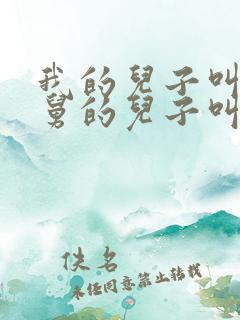 我的兒子叫
舅的兒子叫
佚名
未经同意禁止转载